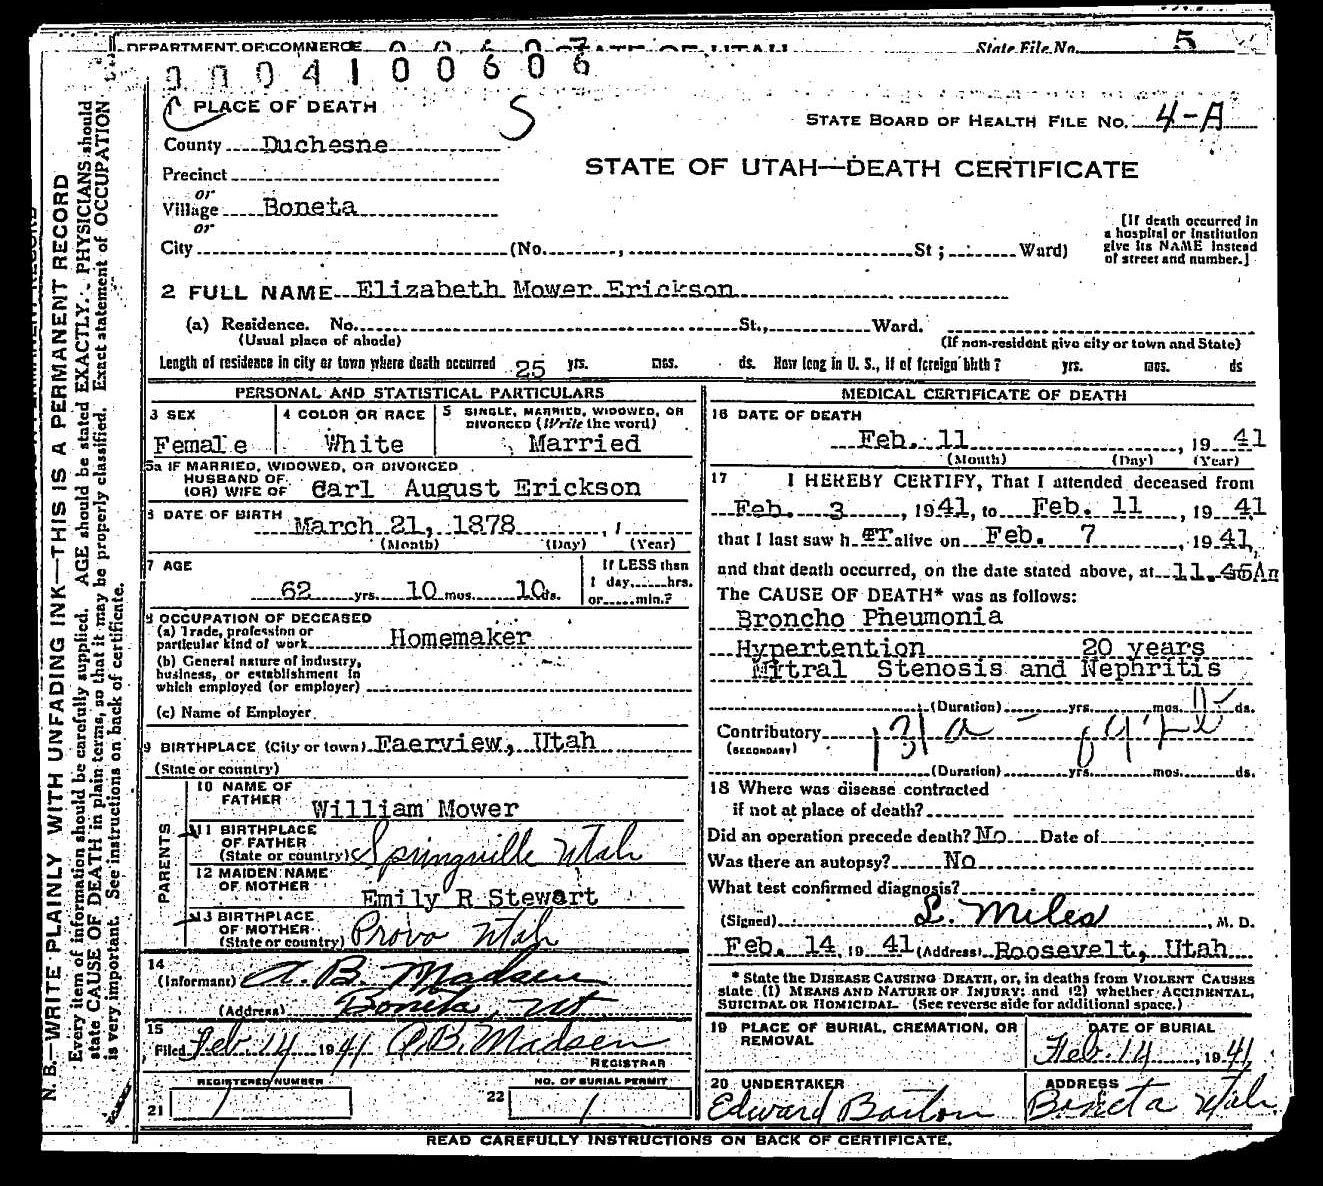 DEPARTMENT OF COMMERCE STATE OF UTAH State File No. 5
0004100606
1 PLACE OF DEATH S
STATE BOARD OF HEALTH FILE No. 4-A
County Duchesne
STATE OF UTAH—DEATH CERTIFICATE
Precinct
or
Village Boneta
or
[If death occurred in
a hospital or institution
give its NAME instead
of street and number.]
City (No. , St ; Ward)
2 FULL NAME Elizabeth Mower Erickson
(a) Residence. No. St., Ward.
(Usual place of abode) (If non-resident give city or town and State)
Length of residence in city or town where death occurred 25 yrs. mos. ds. How long in U. S., if of foreign birth? yrs. mos. ds
PERSONAL AND STATISTICAL PARTICULARS
3 SEX
Female
4 COLOR OR RACE
White
5 SINGLE, MARRIED, WIDOWED, OR
DIVORCED (Write the word)
Married
5a IF MARRIED, WIDOWED, OR DIVORCED
HUSBAND OF
(OR) WIFE OF Carl August Erickson
6 DATE OF BIRTH March 21, 1878
(Month) (Day) (Year)
7 AGE
62 yrs. 10 mos. 10 ds.
If LESS than
1 day,......hrs.
or......min.?
8 OCCUPATION OF DECEASED
(a) Trade, profession or
particular kind of work Homemaker
(b) General nature of industry,
business, or establishment in
which employed (or employer)
(c) Name of Employer
9 BIRTHPLACE (City or town) Faerview, Utah
(State or country)
PARENTS
10 NAME OF
FATHER William Mower
11 BIRTHPLACE
OF FATHER
(State or country) Springville Utah
12 MAIDEN NAME
OF MOTHER Emily R Stewart
13 BIRTHPLACE
OF MOTHER
(State or country) Provo Utah
14
(Informant) A. B. Madsen
(Address) Boneta, Ut
15
Filed Feb. 14 1941 A. B. Madsen
REGISTRAR
REGISTERED NUMBER
21 1
NO. OF BURIAL PERMIT
22 1
MEDICAL CERTIFICATE OF DEATH
16 DATE OF DEATH
Feb. 11 , 19 41
(Month) (Day) (Year)
17 I HEREBY CERTIFY, That I attended deceased from
Feb. 3 , 1941, to Feb. 11 , 19 41
that I last saw h er alive on Feb. 7 , 1941,
and that death occurred, on the date stated above, at 11.45Am
The CAUSE OF DEATH* was as follows:
Broncho Pneumonia
Hypertention 20 years
Mitral Stenosis and Nephritis
(Duration) yrs. mos. ds.
Contributory
(SECONDARY)
(Duration) yrs. mos. ds.
18 Where was disease contracted
if not at place of death?
Did an operation precede death? No Date of
Was there an autopsy? No
What test confirmed diagnosis?
(Signed) L. Miles , M. D.
Feb. 14, 19 41 (Address) Roosevelt, Utah
* State the DISEASE CAUSING DEATH, or, in deaths from VIOLENT CAUSES
state (1) MEANS AND NATURE OF INJURY; and (2) whether ACCIDENTAL,
SUICIDAL OR HOMICIDAL. (See reverse side for additional space.)
19 PLACE OF BURIAL, CREMATION, OR
REMOVAL
DATE OF BURIAL
Feb. 14 , 1941
20 UNDERTAKER
Edward Barton
ADDRESS
Boneta Utah
READ CAREFULLY INSTRUCTIONS ON BACK OF CERTIFICATE.
N. B.—WRITE PLAINLY WITH UNFADING INK—THIS IS A PERMANENT RECORD
Every item of information should be carefully supplied. AGE should be stated EXACTLY. PHYSICIANS should
state CAUSE OF DEATH in plain terms, so that it may be properly classified. Exact statement of OCCUPATION
is very important. See instructions on back of certificate.